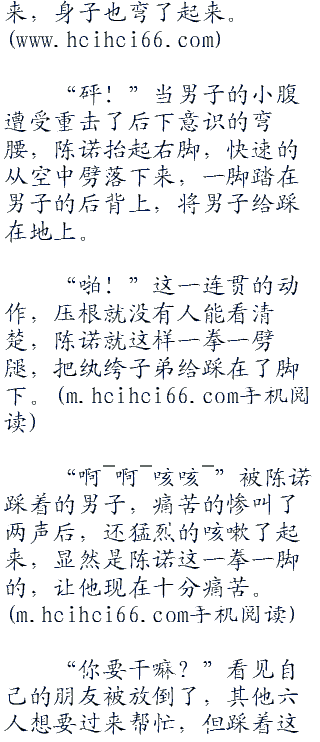 来，身子也弯了起来。
(www.hcihci66.com)
“砰！”当男子的小腹
遭受重击了后下意识的弯
腰，陈诺抬起右脚，快速的
从空中劈落下来，一脚踏在
男子的后背上，将男子给踩
在地上。
“啪！”这一连贯的动
作，压根就没有人能看清
楚，陈诺就这样一拳一劈
腿，把纨绔子弟给踩在了脚
下。(m.hcihci66.com手机阅
读)
“啊¯啊¯咳咳¯”被陈诺
踩着的男子，痛苦的惨叫了
两声后，还猛烈的咳嗽了起
来，显然是陈诺这一拳一脚
的，让他现在十分痛苦。
(m.hcihci66.com手机阅读)
“你要干嘛？”看见自
己的朋友被放倒了，其他六
人想要过来帮忙，但踩着这